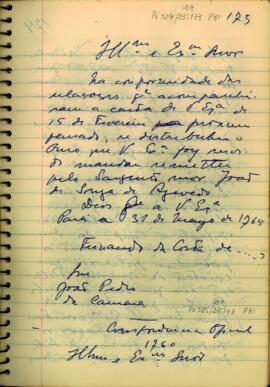 175
Illmo e Exmo Snor
Na conformidade das
relaçoens qe acompanhá-
ram a carta de V Exa
de 15 de Fevereiro proximo
passado, se distribuhio o
Ouro que V Exa foy servi-
do mandar remetter
pelo Sargento mor João
de Souza de Azevedo.
Deos ge a V Exa
Pará a 31 de Março de 1765
Fernando da Costa de .....
Snr
João Pedro
da Camara
Correspondencia Oficial
1760
Illmo e Exmo Snor